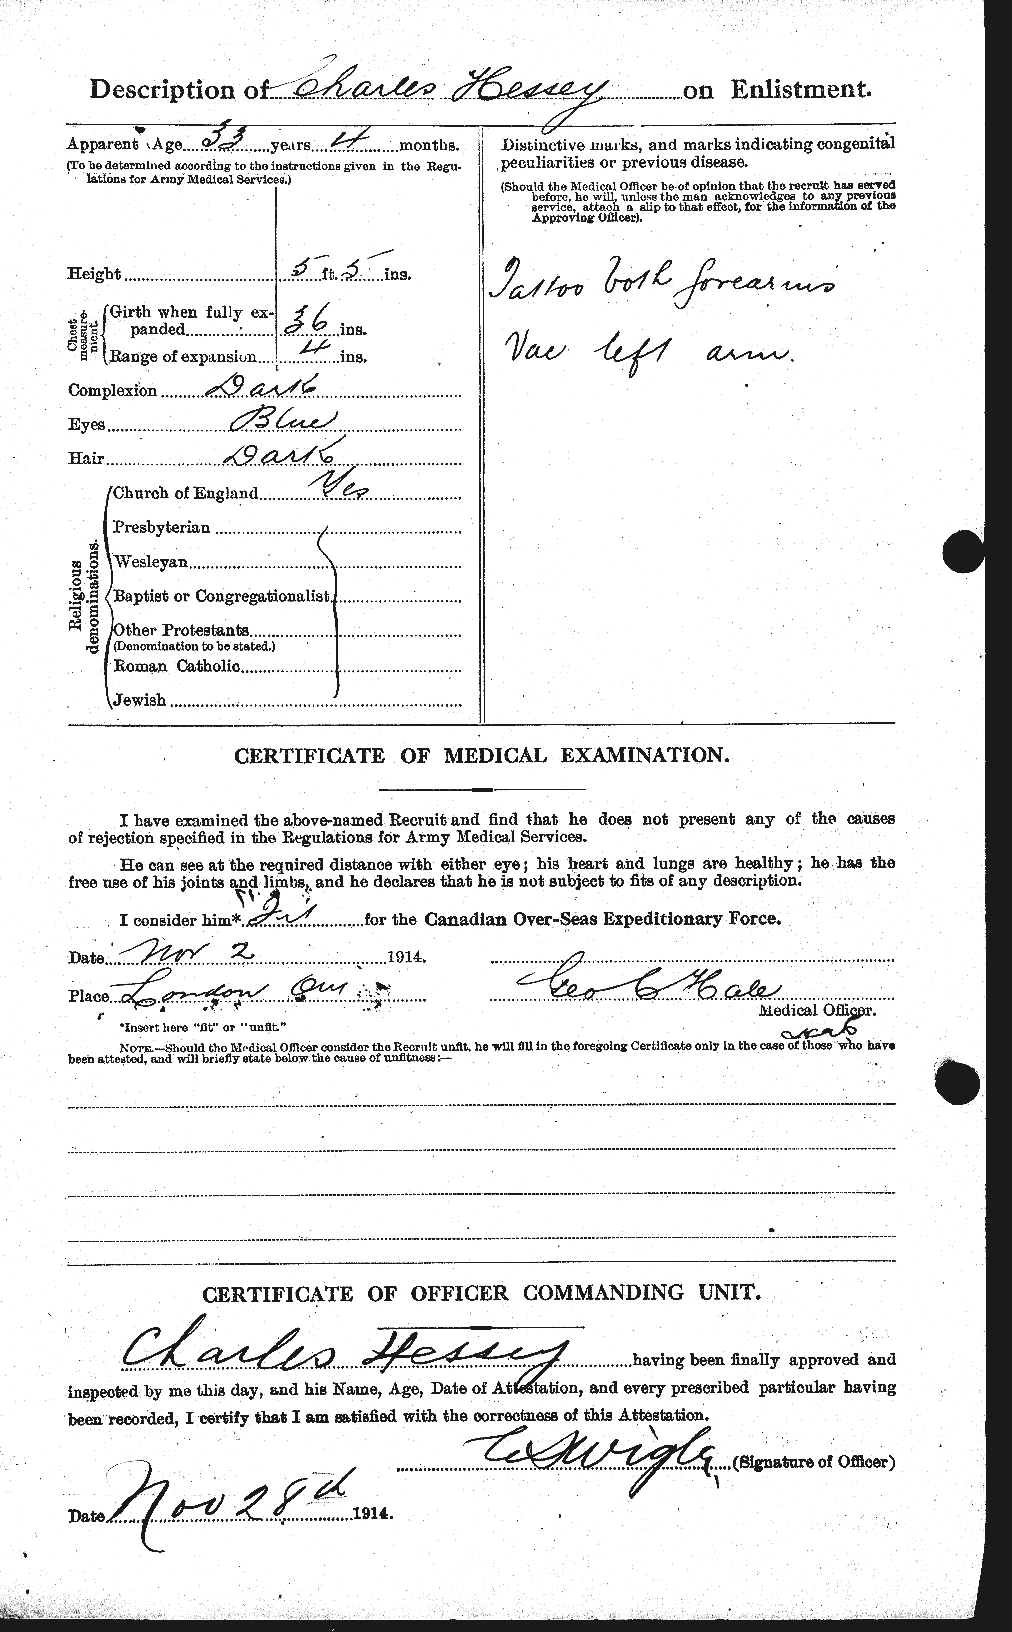 Description of Charles Hessey on Enlistment.
Apparent Age 33 years 4 months.
(To be determined according to the instructions given in the Regu-
lations for Army Medical Services.)
Height 5 ft. 5 ins.
Chest measure-ment.
Girth when fully ex-
panded 36 ins.
Range of expansion 4 ins.
Complexion Dark
Eyes Blue
Hair Dark
Religious denominations.
Church of England Yes
Presbyterian
Wesleyan
Baptist or Congregationalist
Other Protestants
(Denomination to be stated.)
Roman Catholic
Jewish
Distinctive marks, and marks indicating congenital
peculiarities or previous disease.
(Should the Medical Officer be of opinion that the recruit has served
before, he will, unless the man acknowledges to any previous
service, attach a slip to that effect, for the information of the
Approving Officer).
Tattoo both forearms
Vac left arm.
CERTIFICATE OF MEDICAL EXAMINATION.
I have examined the above-named Recruit and find that he does not present any of the causes
of rejection specified in the Regulations for Army Medical Services.
He can see at the required distance with either eye; his heart and lungs are healthy; he has the
free use of his joints and limbs, and he declares that he is not subject to fits of any description.
I consider him* Fit for the Canadian Over-Seas Expeditionary Force.
Date Nov 2 1914.
Place London Ont Geo C Hale
Medical Officer.
*Insert here "fit" or "unfit."
NOTE.—Should the Medical Officer consider the Recruit unfit, he will fill in the foregoing Certificate only in the case of those who have
been attested, and will briefly state below the cause of unfitness:—
CERTIFICATE OF OFFICER COMMANDING UNIT.
Charles Hessey having been finally approved and
inspected by me this day, and his Name, Age, Date of Attestation, and every prescribed particular having
been recorded, I certify that I am satisfied with the correctness of this Attestation.
(Signature of Officer)
Date Nov 28d 1914.